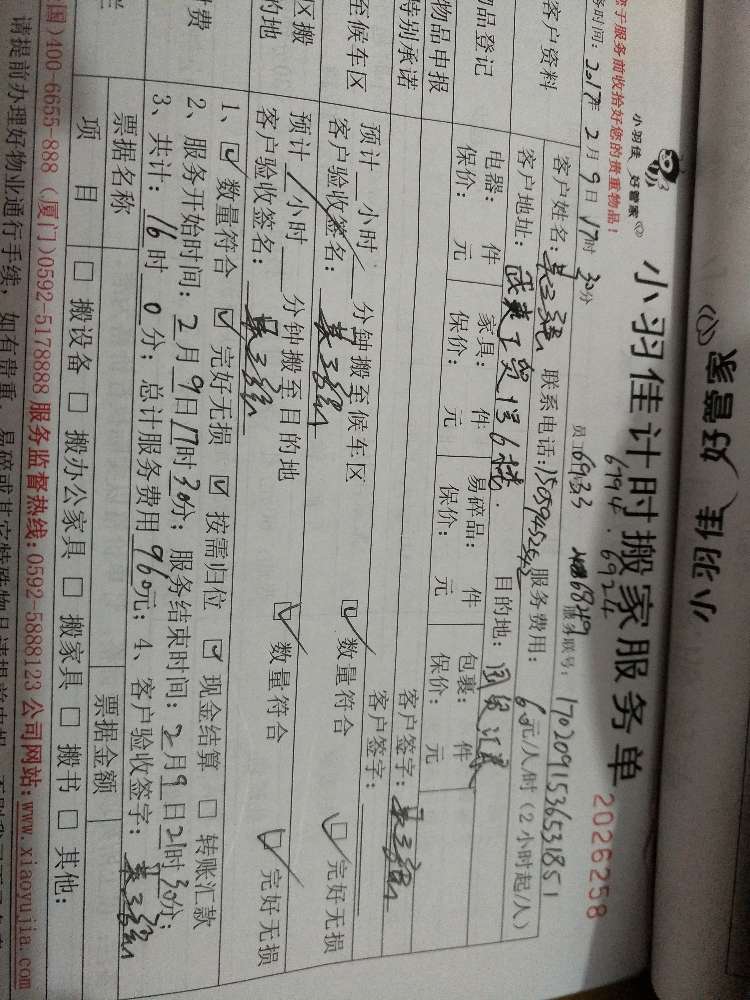 小羽佳 好管家
小羽佳 好管家
小羽佳计时搬家服务单
2026258
您于服务前收拾好您的贵重物品!
务时间: 2017年 2 月 9 日 17时 30分
员工 6933
6994. 6924
服务联号: 1702091536531851
客户资料
客户姓名:
联系电话:
服务费用: 60元/人/时(2小时起/人)
客户地址:
目的地:
品登记
电器: 件 家具: 件 易碎品: 件 包裹: 件
保价: 元 保价: 元 保价: 元 保价: 元
物品申报
客户签字:
特别承诺
客户签字:
至候车区
预计 小时 分钟搬至候车区
客户验收签名:
数量符合 完好无损
区搬
的地
预计 小时 分钟搬至目的地
客户验收签名:
数量符合 完好无损
付费
1、☑ 数量符合 ☑ 完好无损 ☑ 按需归位 ☑ 现金结算 □ 转账汇款
2、服务开始时间: 2 月 9 日 17时 30分; 服务结束时间: 2 月 9 日 21时 30分;
3、共计: 16 时 0 分; 总计服务费用 960元; 4、客户验收签字:
票据名称 票据金额
项 目 □ 搬设备 □ 搬办公家具 □ 搬家具 □ 搬书 □ 其他:
国)400-6655-888 (厦门)0592-5178888 服务监督热线:0592-5888123 公司网站:www.xiaoyujia.com
请提前办理好物业通行手续,如有贵重、易碎或其它特殊物品请提前申报,